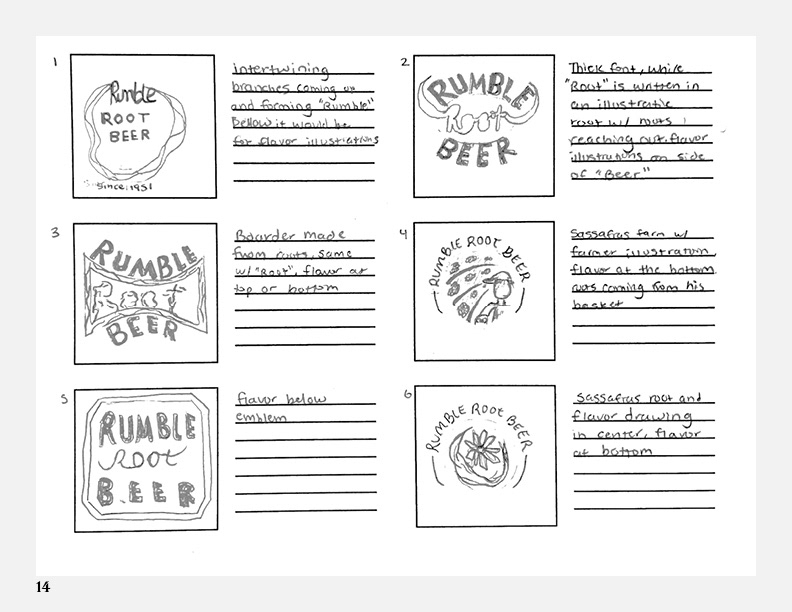 1
Rumble
ROOT
BEER
Since: 1951
intertwining
branches coming up
and forming "Rumble"
Bellow it would be
for flavor illustrations
2
RUMBLE
Root
BEER
Thick font, while
"Root" is written in
an illustrative
root w/ roots
reaching out. flavor
illustrations on side
of "Beer"
3
RUMBLE
Root
BEER
Boarder made
from roots, same
w/ "Root", flavor at
top or bottom
4
RUMBLE ROOT BEER
Sassafras farm w/
farmer illustration,
flavor at the bottom
roots coming from his
basket
5
RUMBLE
Root
BEER
flavor below
emblem
6
RUMBLE ROOT BEER
Sassafras root and
flavor drawing
in center, flavor
at bottom
14